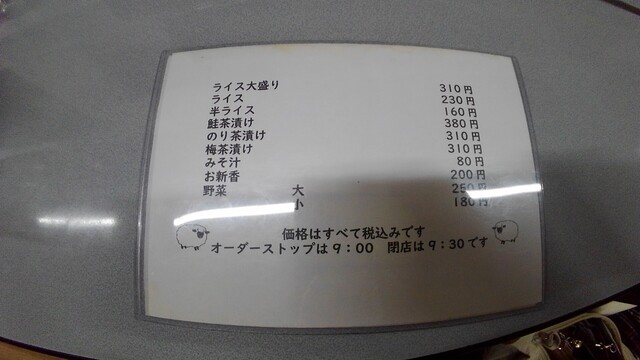 ライス大盛り 310円
ライス 230円
半ライス 160円
鮭茶漬け 380円
のり茶漬け 310円
梅茶漬け 310円
みそ汁 80円
お新香 200円
野菜 大 250円
小 180円
価格はすべて税込みです
オーダーストップは9:00 閉店は9:30です